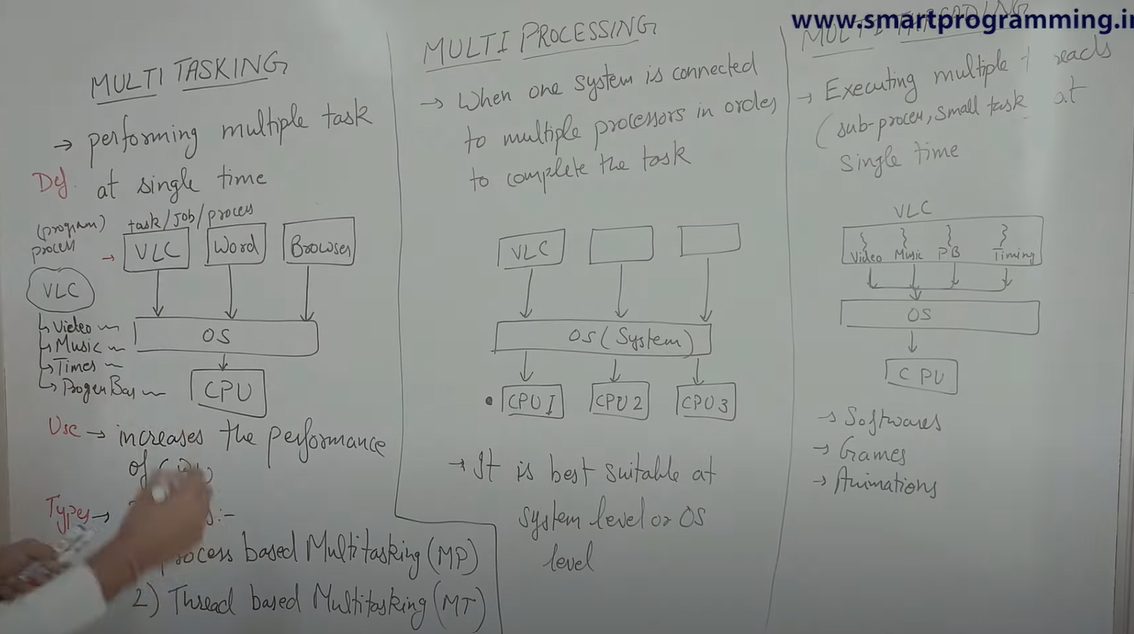 www.smartprogramming.in
MULTI TASKING
→ performing multiple task
Def. at single time
(program)
process
task/job/process
→ VLC
Word
Browser
VLC
Video
Music
Times
OS
CPU
Use → increases the performance
of
Types →
Process based Multitasking (MP)
2) Thread based Multitasking (MT)
MULTI PROCESSING
→ When one system is connected
to multiple processors in order
to complete the task
VLC
OS (System)
CPU 1
CPU 2
CPU 3
→ It is best suitable at
system level or OS
level
MULTI THREADING
→ Executing multiple threads
(sub-process, small task at
single time
VLC
Video
Music
PB
Timing
OS
CPU
→ Softwares
→ Games
→ Animations